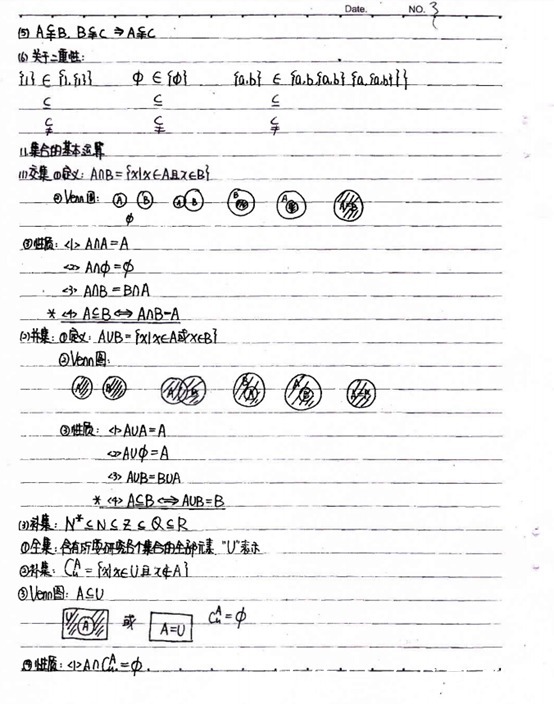 Date. NO. 3
(5) A⫋B, B⫋C ⇒ A⫋C
(6) 关于二重性:
{1} ∈ {1,{1}} ϕ ∈ {ϕ} {a,b} ∈ {a,b,{a,b},{a,{a,b}}}
⊆ ⊆ ⊆
⫋ ⫋ ⫋
11.集合的基本运算
(1)交集 ①定义: A∩B = {x|x∈A且x∈B}
②Venn图: A B A B B A A B A=B
ϕ
③性质: <1> A∩A=A
<2> A∩ϕ=ϕ
<3> A∩B=B∩A
* <4> A⊆B ⟺ A∩B=A
(2)并集: ①定义: A∪B={x|x∈A或x∈B}
②Venn图:
A B A B B A A B A=B
③性质: <1> A∪A=A
<2> A∪ϕ=A
<3> A∪B=B∪A
* <4> A⊆B ⟺ A∪B=B
(3)补集: N* ⊆ N ⊆ Z ⊆ Q ⊆ R
①全集: 含有所要研究各个集合的全部元素 "U"表示
②补集: C_u^A = {x|x∈U且x∉A}
③Venn图: A⊆U
U A 或 A=U C_u^A=ϕ
④性质: <1> A∩C_u^A=ϕ